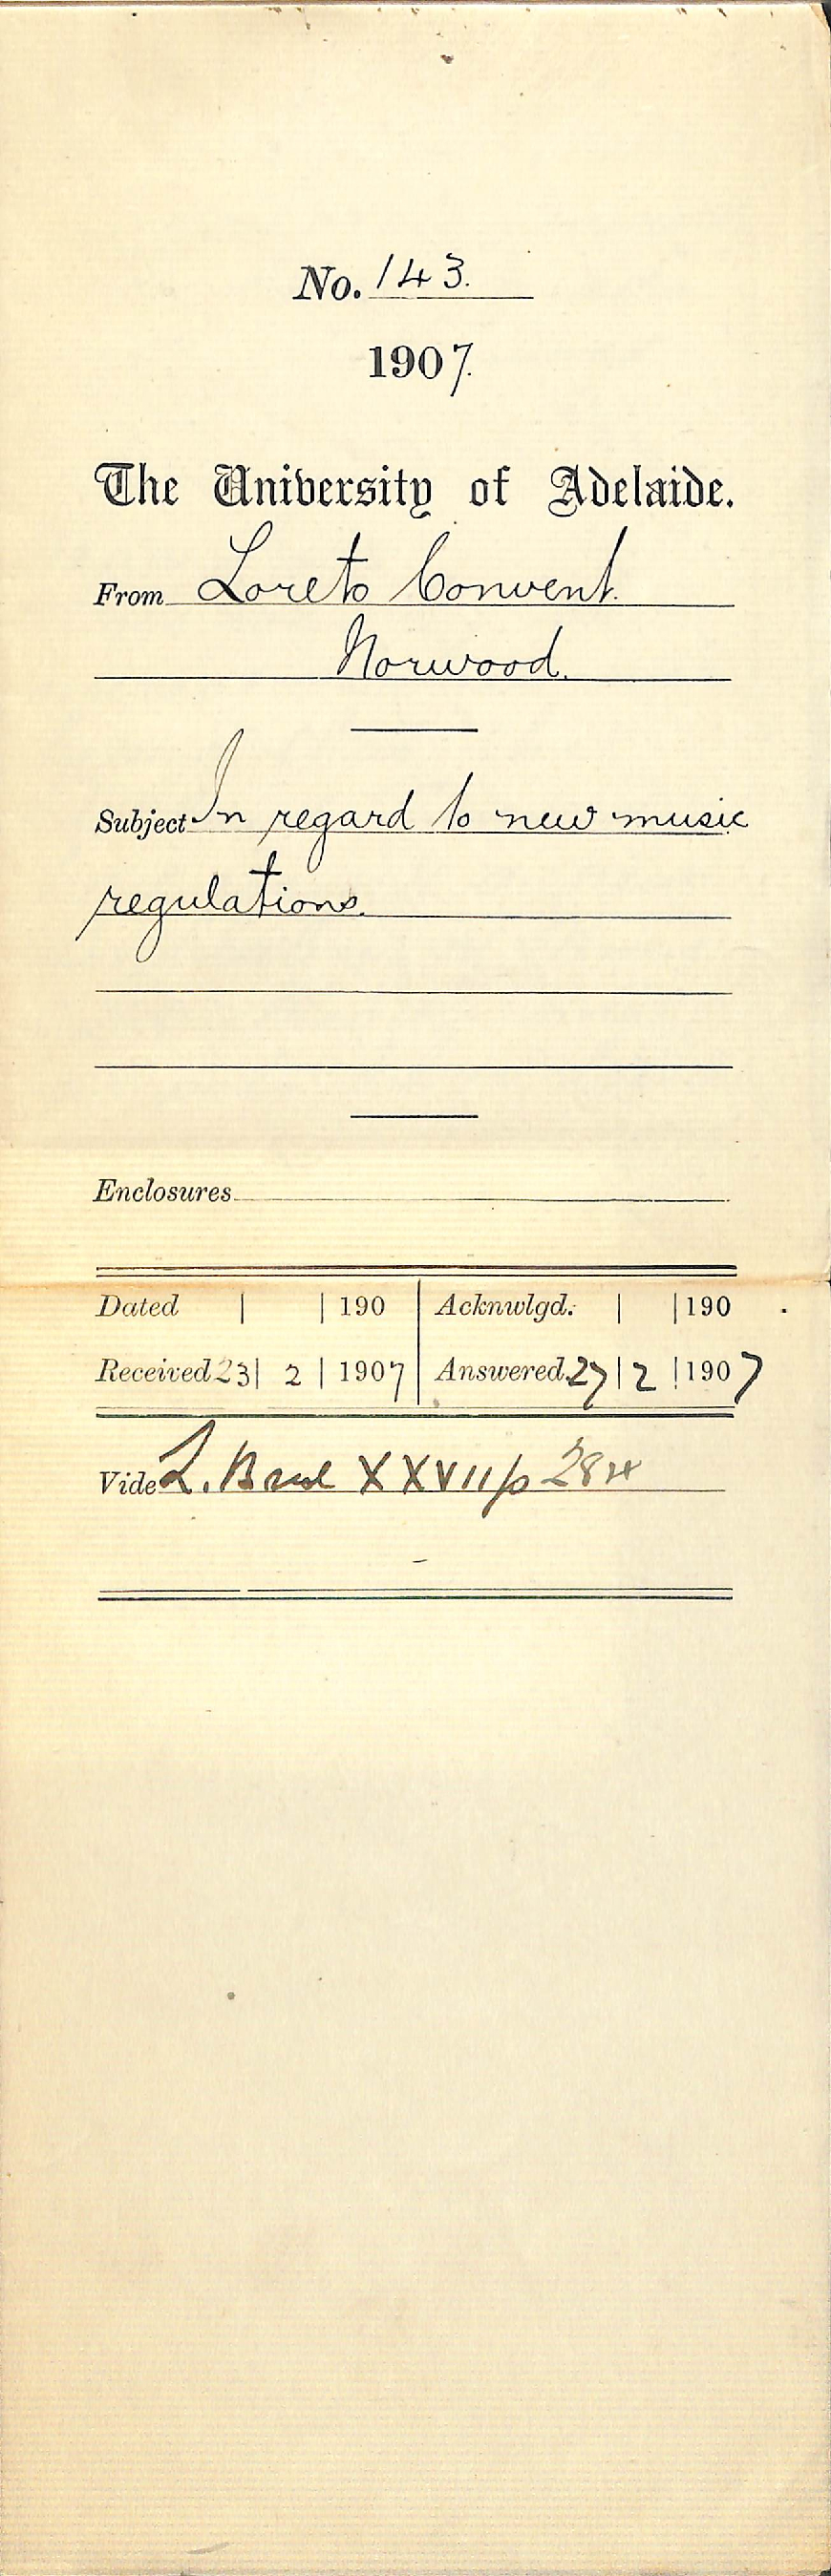 No. 143.
1907.
The University of Adelaide.
From Loreto Convent.
Norwood.
Subject In regard to new music
regulations.
Enclosures
Dated | | 190 | Acknwlgd: | | 190
Received 23 | 2 | 1907 | Answered 27 | 2 | 1907
Vide L. XXVII p 284